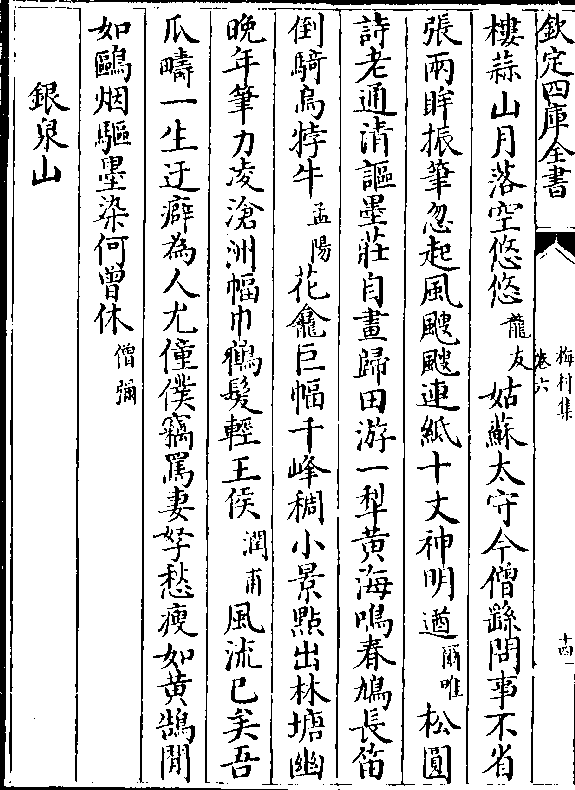 欽定四庫全書
梅村集
卷六
十四
樓蒜山月落空悠悠龍友姑蘇太守今僧繇問事不省
張兩眸振筆忽起風颼颼連紙十丈神明遒爾唯松圓
詩老通清謳墨莊自畫歸田游一犁黃海鳴春鳩長笛
倒騎烏牸牛孟陽花龕巨幅千峰稠小景點出林塘幽
晚年筆力凌滄洲幅巾鶴髮輕王侯潤甫風流已矣吾
瓜疇一生迂癖為人尤僮僕竊罵妻孥愁瘦如黃鵠閒
如鷗烟驅墨染何曾休僧彌
銀泉山